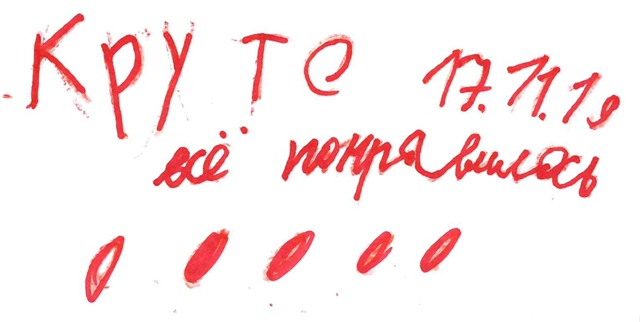 Круто 17.11.19
всё понравилось